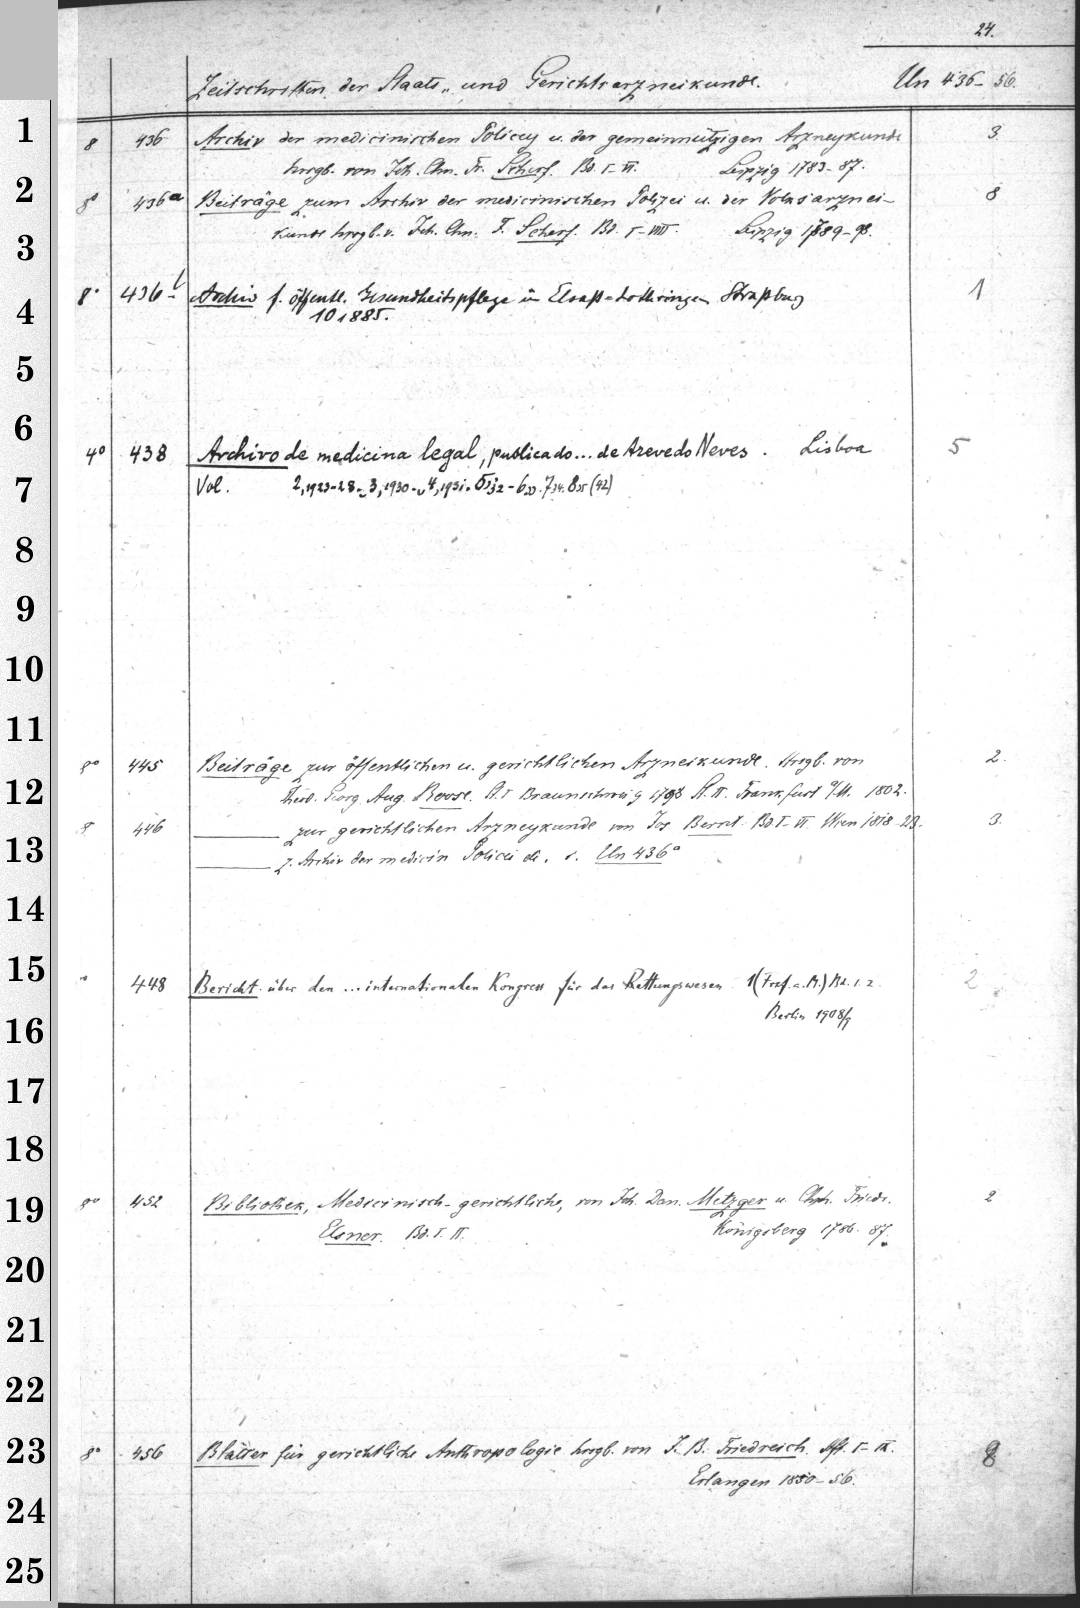 24.
Zeitschriften der Staats- und Gerichtsarzneikunde. Un 436-56.
1
8 436 Archiv der medicinischen Policey u. der gemeinnützigen Arzneykunde 3
hrsgb. von Joh. Chn. Fr. Scherf. Bd. I-VI. Leipzig 1783-87.
2
8° 436a Beiträge zum Archiv der medicinischen Polizei u. der Volksarznei- 8
3
kunde hrsgb. v. Joh. Chn. F. Scherf. Bd. I-VIII. Leipzig 1789-98.
8° 436 b Archiv f. öffentl. Gesundheitspflege in Elsaß-Lothringen Straßburg 1
4
10 1885.
5
6
4° 438 Archivo de medicina legal, publicado... de Azevedo Neves. Lisboa 5
7
Vol. 2,1923-28 - 3,1930 - 4,1931. 5,32 - 6,33. 7,34. 8,35 (42)
8
9
10
11
8° 445 Beiträge zur öffentlichen u. gerichtlichen Arzneikunde. Hrsgb. von 2.
12
Theod. Georg. Aug. Roose. St. I Braunschweig 1798 St. II. Frankfurt a/M. 1802.
8 446 zur gerichtlichen Arzneykunde von Jos. Bernt. Bd I-VI. Wien 1818-23. 3.
13
z. Archiv der medicin Policei s. Un 436a
14
15
448 Bericht über den ... internationalen Kongress für das Rettungswesen 1 (Frkf. a. M.) Bd. 1.2. 2
Berlin 1908/9
16
17
18
19
8° 452 Bibliothek, Medicinisch-gerichtliche, von Joh. Dan. Metzger u. Chph. Friedr. 2
Elsner. Bd. I. II. Königsberg 1786. 87.
20
21
22
23
8° 456 Blätter für gerichtliche Anthropologie hrsgb. von J. B. Friedreich. Hft. I-IX. 8
Erlangen 1850-56.
24
25